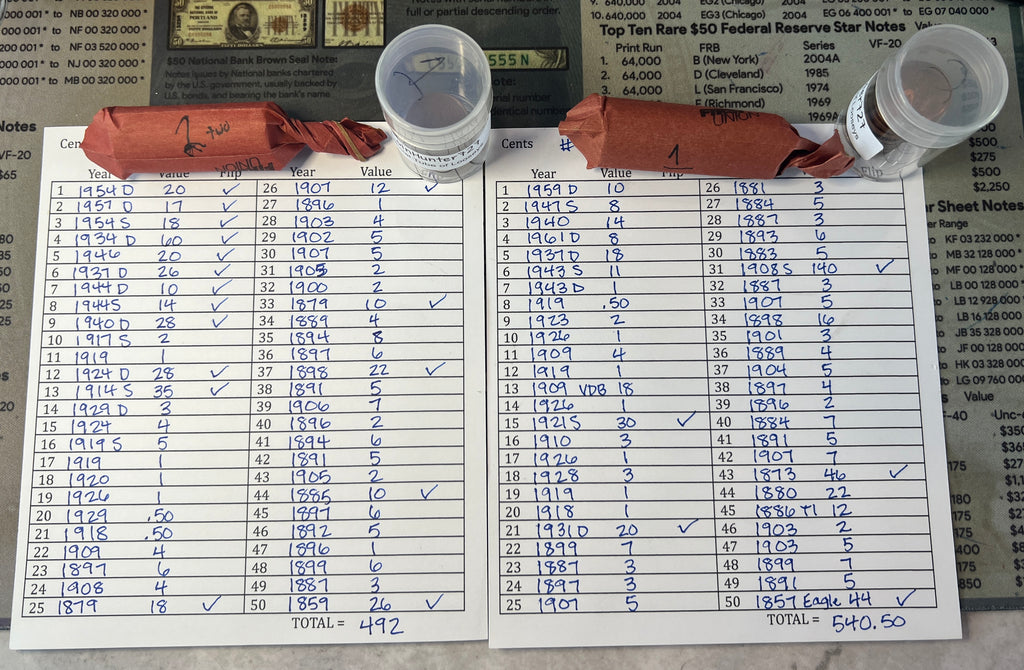 9. 640,000 2004 EG3 (Chicago) 2004 EG 06 400 001 * to EG 07 040 000 *
10. 640,000 2004
full or partial descending order.
NB 00 320 000 *
to NF 00 320 000 *
200 001 * to NF 03 520 000 *
001 * to NJ 00 320 000 *
000 001 * to MB 00 320 000 *
PORTLAND
$50 National Bank Brown Seal Note:
Notes issued by National banks chartered
by the U.S. government, usually backed by
U.S. bonds, and bearing the bank's name
555 N
Top Ten Rare $50 Federal Reserve Star Notes
Print Run FRB Series VF-20 Value
1. 64,000 B (New York) 2004A
2. 64,000 D (Cleveland) 1985
3. 64,000 L (San Francisco) 1974
E (Richmond) 1969
1969A
$500
$275
$500
$2,250
Notes
VF-20
$65
2 two
UNION
1
UNION
Cents #
Year Value Flip Year Value
1 1954 D 20 ✓ 26 1907 12 ✓
2 1957 D 17 ✓ 27 1896 1
3 1954 S 18 ✓ 28 1903 4
4 1934 D 60 ✓ 29 1902 5
5 1946 20 ✓ 30 1907 5
6 1937 D 26 ✓ 31 1905 2
7 1944 D 10 ✓ 32 1900 2
8 1944S 14 ✓ 33 1879 10 ✓
9 1940 D 28 ✓ 34 1889 4
10 1917 S 2 35 1894 8
11 1919 1 36 1897 6
12 1924 D 28 ✓ 37 1898 22 ✓
13 1914 S 35 ✓ 38 1891 5
14 1929 D 3 39 1906 7
15 1924 4 40 1896 2
16 1919 S 5 41 1894 6
17 1919 1 42 1891 5
18 1920 1 43 1905 2
19 1926 1 44 1885 10 ✓
20 1929 .50 45 1897 6
21 1918 .50 46 1892 5
22 1909 4 47 1896 1
23 1897 6 48 1899 6
24 1908 4 49 1887 3
25 1879 18 ✓ 50 1859 26 ✓
TOTAL = 492
Year Value Flip
1 1959 D 10 26 1881 3
2 1947 S 8 27 1884 5
3 1940 14 28 1887 3
4 1961 D 8 29 1893 6
5 1937 D 18 30 1883 5
6 1943 S 11 31 1908 S 140 ✓
7 1943 D 1 32 1887 3
8 1919 .50 33 1907 5
9 1923 2 34 1898 16
10 1926 1 35 1901 3
11 1909 4 36 1889 4
12 1919 1 37 1904 5
13 1909 VDB 18 38 1897 4
14 1926 1 39 1896 2
15 1921S 30 ✓ 40 1884 7
16 1910 3 41 1891 5
17 1926 1 42 1907 7
18 1928 3 43 1873 46 ✓
19 1919 1 44 1880 22
20 1918 1 45 1886 T1 12
21 1931D 20 ✓ 46 1903 2
22 1899 7 47 1903 5
23 1887 3 48 1899 7
24 1897 3 49 1891 5
25 1907 5 50 1857 Eagle 44 ✓
TOTAL = 540.50
Sheet Notes
KF 03 232 000 *
MB 32 128 000 *
MF 00 128 000 *
LB 00 128 000 *
LB 12 928 000 *
LB 16 128 000 *
JB 35 328 000 *
JF 00 128 000 *
HK 03 328 000 *
LG 09 760 000 *
Value